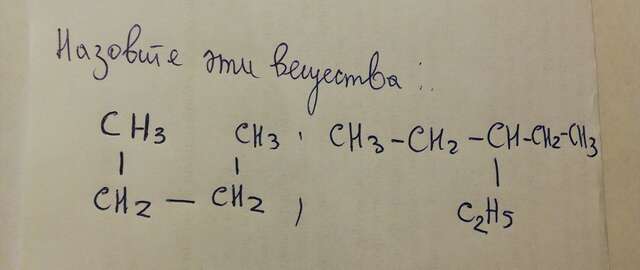 Назовите эти вещества:
CH3 CH3, CH3-CH2-CH-CH2-CH3
| | |
CH2 — CH2, C2H5